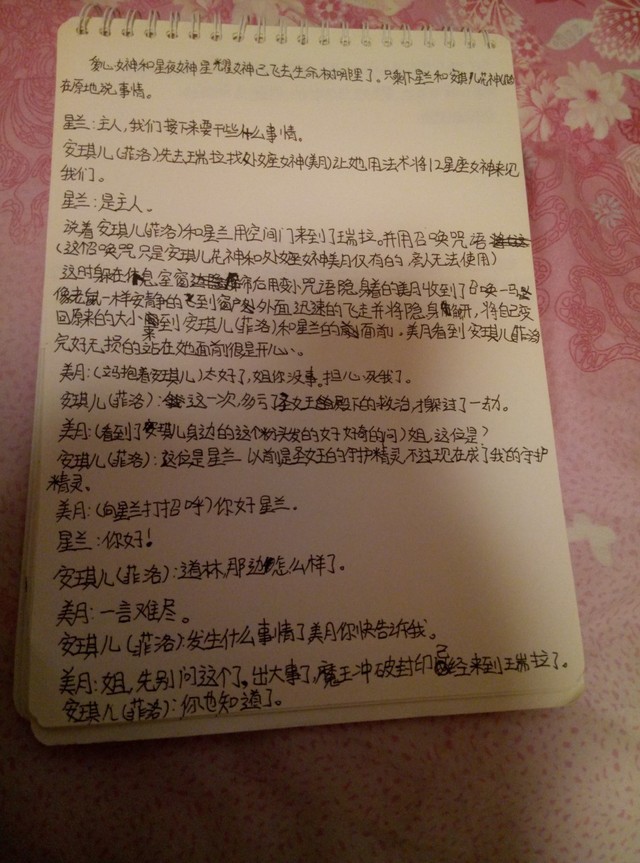 爱心女神和星夜女神星光女神已飞去生命树那里了。只剩下星兰和安琪儿花神
在原地说事情。
星兰:主人,我们接下来要干些什么事情。
安琪儿(菲洛)先去瑞拉找处女座女神(美月)让她用法术将12星座女神来见
我们。
星兰:是主人。
说着安琪儿(菲洛)和星兰用空间门来到了瑞拉。并用召唤咒语
(这个召唤咒只是安琪儿花神和处女座女神美月仅有的 旁人无法使用)
这时躲在休息室窗帘后用变小咒语隐身着的美月收到了召唤一马
像老鼠一样安静的飞到窗户外面迅速的飞走并将隐身解开,将自己变
回原来的大小来到安琪儿(菲洛)和星兰的面前。美月看到安琪儿菲洛
完好无损的站在她面前很是开心。
美月:(立马抱着安琪儿)太好了,姐你没事。担心死我了。
安琪儿(菲洛):这一次,多亏了圣女王殿下的救治,才躲过了一劫。
美月:(看到了安琪儿身边的这个粉头发的女子好奇的问)姐,这位是?
安琪儿(菲洛):这位是星兰 以前是圣女王的守护精灵 不过现在成了我的守护
精灵。
美月:(向星兰打招呼)你好星兰。
星兰:你好!
安琪儿(菲洛):道林那边怎么样了。
美月:一言难尽。
安琪儿(菲洛):发生什么事情了美月你快告诉我。
美月:姐,先别问这个了。出大事了,魔王冲破封印已经来到瑞拉了。
安琪儿(菲洛):你也知道了。